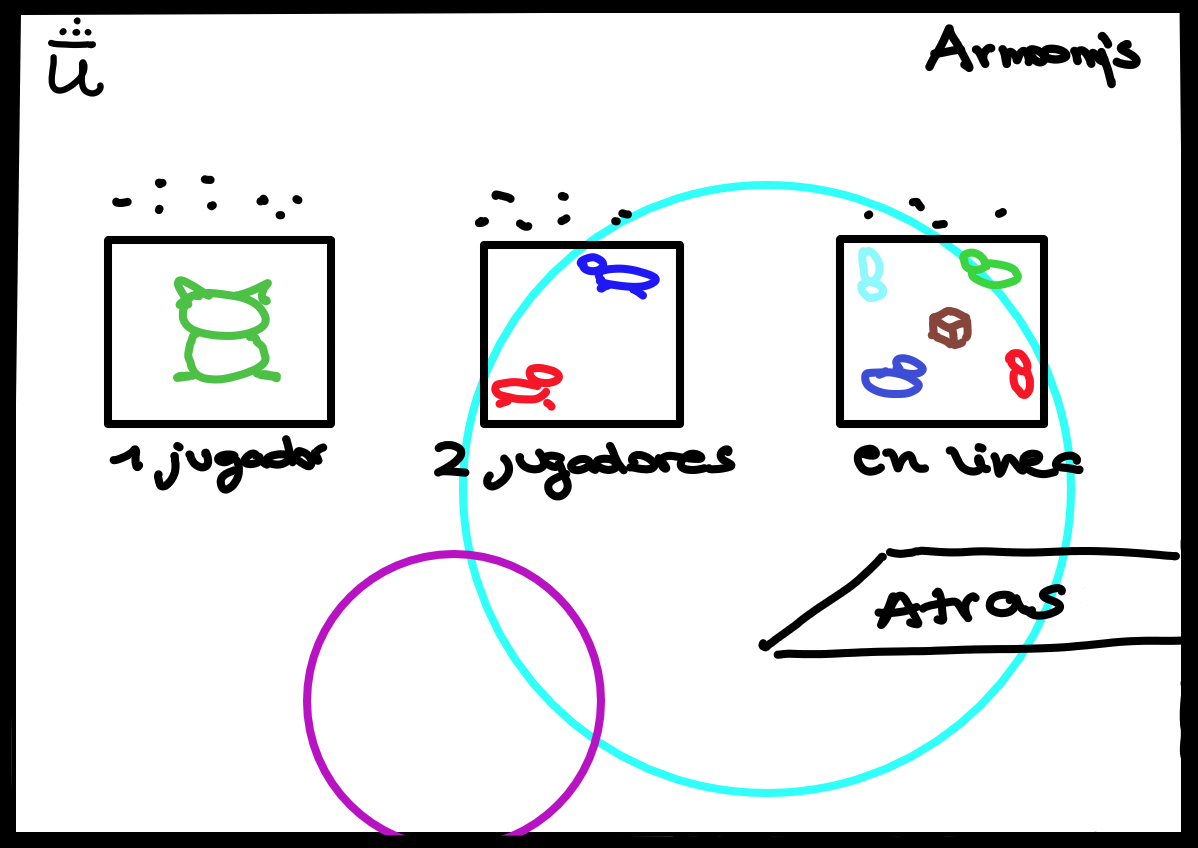 Armonj's
1 jugador
2 jugadores
en linea
Atras